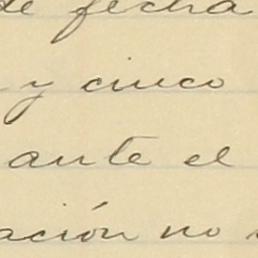 de fecha
y cinco
ante el
ación no